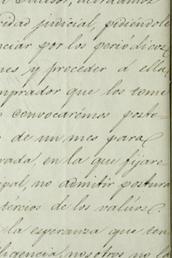 ridad judicial, pidiéndole
nciar por los periódicos
nes y proceder á ella
mprador que los tome
convocarémos poste-
de un mes para
rada, en la que fijare
pal, no admitir postura
tércios de los valúos.
la esperanza que ten
iligencia, nosotros no lo